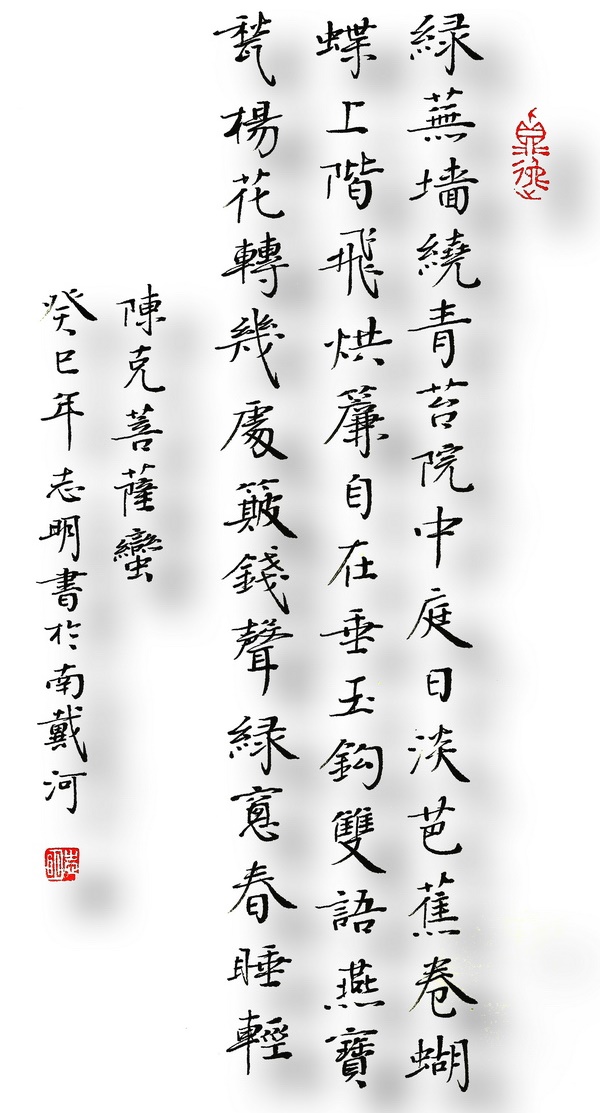 綠蕪墙繞青苔院中庭日淡芭蕉卷蝴
蝶上階飛烘簾自在垂玉鈎雙語燕寶
甃楊花轉幾處簸錢聲綠窻春睡輕
陳克菩薩蠻
癸巳年志明書於南戴河
志明